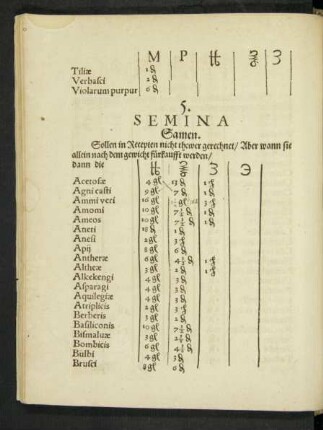 M P ℔ ℥ ʒ
Tiliæ 1 ₰
Verbasci 2 ₰
Violarum purpur 6 ₰
5.
SEMINA
Samen.
Sollen in Recepten nicht thewer gerechnet / Aber wann sie
allein nach dem gewicht fürkaufft werden /
dann die ℔ ℥ ʒ ℈
Acetosæ 4 gl 13 ₰
Agni casti 9 gl 7 ₰
Ammi veri 16 gl
Amomi 10 gl 7½ ₰
Ameos 10 gl 7½ ₰
Aneti 18 ₰ 2 ₰
Anesi 2 gl
Apij 8 gl 6 ₰
Antheræ 6 gl 4½ ₰
Altheæ 3 gl 2 ₰
Alkekengi 4 gl 3 ₰
Asparagi 4 gl 3 ₰
Aquilegiæ 4 gl 3 ₰
Atriplicis 2 gl
Berberis 3 gl 2 ₰
Basiliconis 10 gl 7½ ₰
Bismaluæ 3 gl
Bombicis 6 gl 4½ ₰
Bulbi 4 gl 3 ₰
Brusci 8 gl 6 ₰